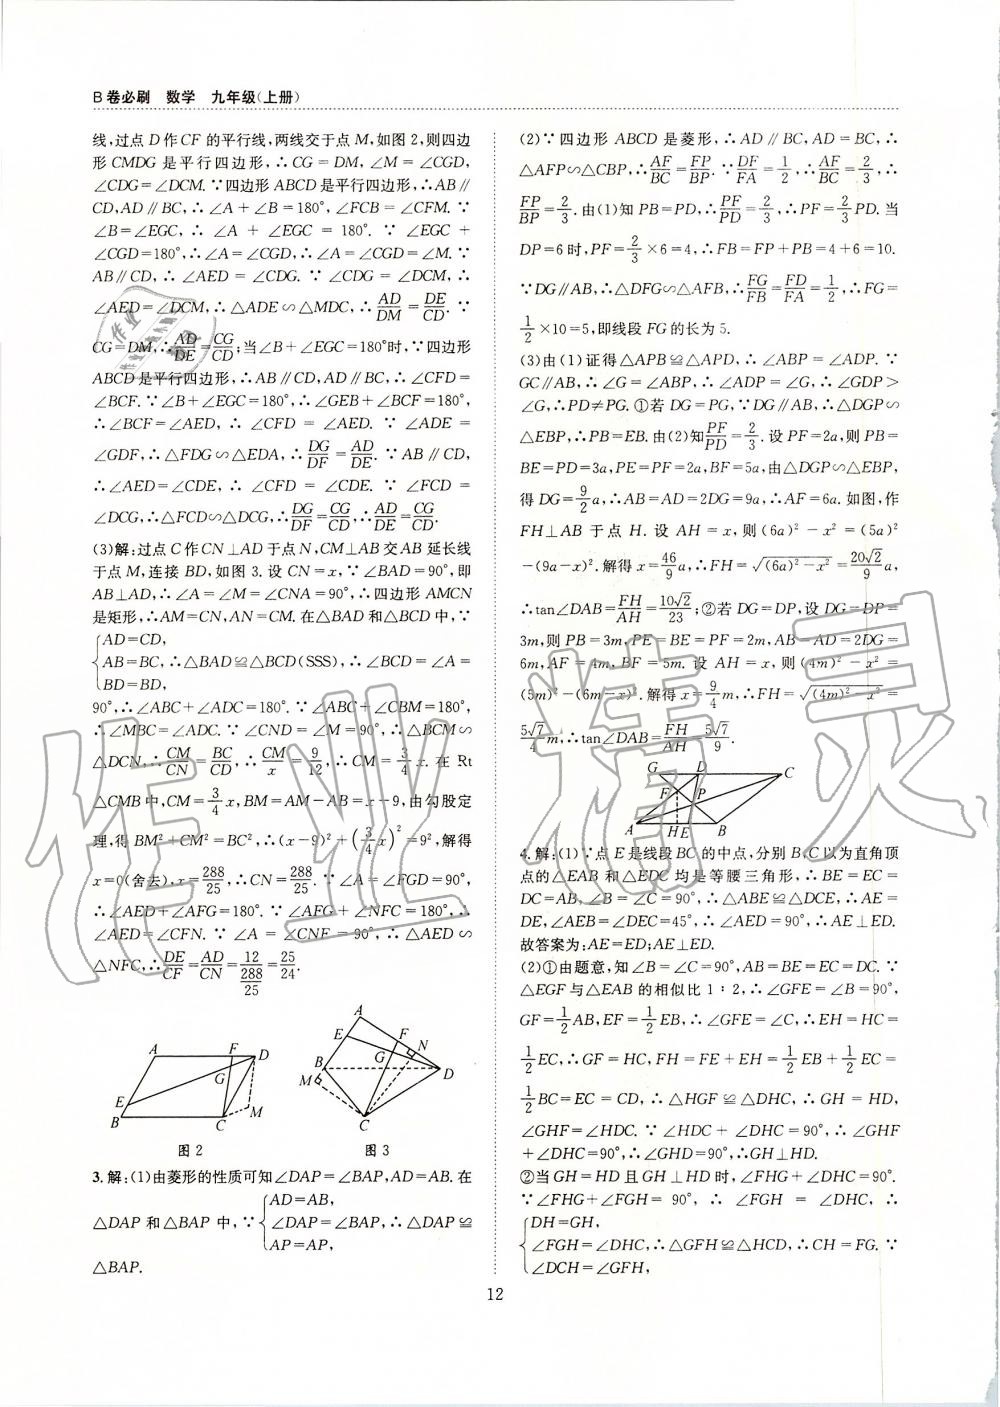 B卷必刷 数学 九年级(上册)
线,过点D作CF的平行线,两线交于点M,如图2,则四边
形CMDG是平行四边形,∴CG=DM,∠M=∠CGD,
∠CDG=∠DCM.∵四边形ABCD是平行四边形,∴AB∥
CD,AD∥BC,∴∠A+∠B=180°,∠FCB=∠CFM.∵
∠B=∠EGC,∴∠A+∠EGC=180°.∵∠EGC+
∠CGD=180°,∴∠A=∠CGD,∴∠A=∠CGD=∠M.∵
AB∥CD,∴∠AED=∠CDG.∵∠CDG=∠DCM,∴
∠AED=∠DCM,∴△ADE∽△MDC,∴AD/DM=DE/CD.∵
CG=DM,∴AD/DE=CG/CD;当∠B+∠EGC=180°时,∵四边形
ABCD是平行四边形,∴AB∥CD,AD∥BC,∴∠CFD=
∠BCF.∵∠B+∠EGC=180°,∴∠GEB+∠BCF=180°,
∴∠BCF=∠AED,∴∠CFD=∠AED.∵∠ADE=
∠GDF,∴△FDG∽△EDA,∴DG/DF=AD/DE.∵AB∥CD,
∴∠AED=∠CDE,∴∠CFD=∠CDE.∵∠FCD=
∠DCG,∴△FCD∽△DCG,∴DG/DF=CG/CD,∴AD/DE=CG/CD.
(3)解:过点C作CN⊥AD于点N,CM⊥AB交AB延长线
于点M,连接BD,如图3.设CN=x,∵∠BAD=90°,即
AB⊥AD,∴∠A=∠M=∠CNA=90°,∴四边形AMCN
是矩形,∴AM=CN,AN=CM.在△BAD和△BCD中,∵
{AD=CD,
AB=BC,∴△BAD≌△BCD(SSS),∴∠BCD=∠A=
BD=BD,
90°,∴∠ABC+∠ADC=180°.∵∠ABC+∠CBM=180°,
∴∠MBC=∠ADC.∵∠CND=∠M=90°,∴△BCM∽
△DCN,∴CM/CN=BC/CD,∴CM/x=9/12,∴CM=3/4x.在Rt
△CMB中,CM=3/4x,BM=AM-AB=x-9,由勾股定
理,得BM²+CM²=BC²,∴(x-9)²+(3/4x)²=9²,解得
x=0(舍去),x=288/25,∴CN=288/25.∵∠A=∠FGD=90°,
∴∠AED+∠AFG=180°.∵∠AFG+∠NFC=180°,∴
∠AED=∠CFN.∵∠A=∠CNF=90°,∴△AED∽
△NFC,∴DE/CF=AD/CN=12/(288/25)=25/24.
A F D G E B C M
图2
A E F N G B M D C
图3
3.解:(1)由菱形的性质可知∠DAP=∠BAP,AD=AB.在
△DAP和△BAP中,∵{AD=AB,
∠DAP=∠BAP,∴△DAP≌
AP=AP,
△BAP.
(2)∵四边形ABCD是菱形,∴AD∥BC,AD=BC,∴
△AFP∽△CBP,∴AF/BC=FP/BP.∵DF/FA=1/2,∴AF/BC=2/3,∴
FP/BP=2/3.由(1)知PB=PD,∴PF/PD=2/3,∴PF=2/3PD.当
DP=6时,PF=2/3×6=4,∴FB=FP+PB=4+6=10.
∵DG∥AB,∴△DFG∽△AFB,∴FG/FB=FD/FA=1/2,∴FG=
1/2×10=5,即线段FG的长为5.
(3)由(1)证得△APB≌△APD,∴∠ABP=∠ADP.∵
GC∥AB,∴∠G=∠ABP,∴∠ADP=∠G,∴∠GDP>
∠G,∴PD≠PG.①若DG=PG,∵DG∥AB,∴△DGP∽
△EBP,∴PB=EB.由(2)知PF/PD=2/3.设PF=2a,则PB=
BE=PD=3a,PE=PF=2a,BF=5a,由△DGP∽△EBP,
得DG=9/2a,∴AB=AD=2DG=9a,∴AF=6a.如图,作
FH⊥AB于点H.设AH=x,则(6a)²-x²=(5a)²
-(9a-x)².解得x=46/9a,∴FH=√((6a)²-x²)=20√2/9a,
∴tan∠DAB=FH/AH=10√2/23;②若DG=DP,设DG=DP=
3m,则PB=3m,PE=BE=PF=2m,AB=AD=2DG=
6m,AF=4m,BF=5m.设AH=x,则(4m)²-x²=
(5m)²-(6m-x)².解得x=9/4m,∴FH=√((4m)²-x²)=
5√7/4m,∴tan∠DAB=FH/AH=5√7/9.
G D C F P A H E B
4.解:(1)∵点E是线段BC的中点,分别B、C以为直角顶
点的△EAB和△EDC均是等腰三角形,∴BE=EC=
DC=AB,∠B=∠C=90°,∴△ABE≌△DCE,∴AE=
DE,∠AEB=∠DEC=45°,∴∠AED=90°,∴AE⊥ED.
故答案为:AE=ED;AE⊥ED.
(2)①由题意,知∠B=∠C=90°,AB=BE=EC=DC.∵
△EGF与△EAB的相似比1∶2,∴∠GFE=∠B=90°,
GF=1/2AB,EF=1/2EB,∴∠GFE=∠C,∴EH=HC=
1/2EC,∴GF=HC,FH=FE+EH=1/2EB+1/2EC=
1/2BC=EC=CD,∴△HGF≌△DHC,∴GH=HD,
∠GHF=∠HDC.∵∠HDC+∠DHC=90°,∴∠GHF
+∠DHC=90°,∴∠GHD=90°,∴GH⊥HD.
②当GH=HD且GH⊥HD时,∠FHG+∠DHC=90°.
∵∠FHG+∠FGH=90°,∴∠FGH=∠DHC,∴
{DH=GH,
∠FGH=∠DHC,∴△GFH≌△HCD,∴CH=FG.∵
∠DCH=∠GFH,
12
作业精灵